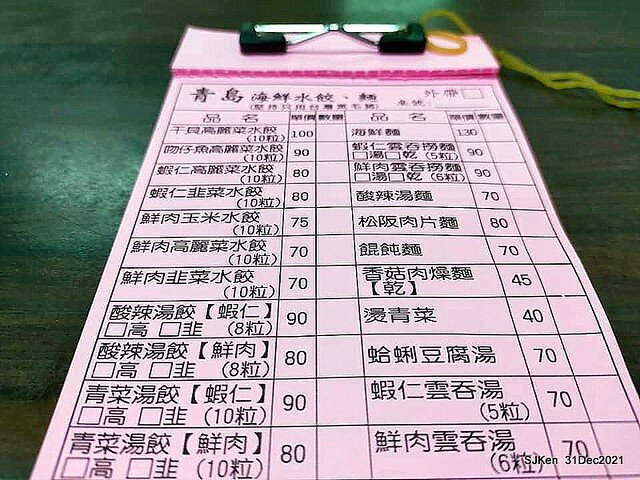 青島 海鮮水餃、麵 外帶□
(堅持只用台灣黑毛豬) 桌號:
品名 單價 數量 品名 單價 數量
干貝高麗菜水餃 (10粒) 100 海鮮麵 130
吻仔魚高麗菜水餃 (10粒) 90 蝦仁雲吞撈麵 □湯□乾 (5粒) 90
蝦仁高麗菜水餃 (10粒) 80 鮮肉雲吞撈麵 □湯□乾 (6粒) 90
蝦仁韭菜水餃 (10粒) 80 酸辣湯麵 70
鮮肉玉米水餃 (10粒) 75 松阪肉片麵 80
鮮肉高麗菜水餃 (10粒) 70 餛飩麵 70
鮮肉韭菜水餃 (10粒) 70 香菇肉燥麵【乾】 45
酸辣湯餃【蝦仁】 □高 □韭 (8粒) 90 燙青菜 40
酸辣湯餃【鮮肉】 □高 □韭 (8粒) 80 蛤蜊豆腐湯 70
青菜湯餃【蝦仁】 □高 □韭 (10粒) 90 蝦仁雲吞湯 (5粒) 70
青菜湯餃【鮮肉】 □高 □韭 (10粒) 80 鮮肉雲吞湯 (6粒) 70
SJKen 31Dec2021